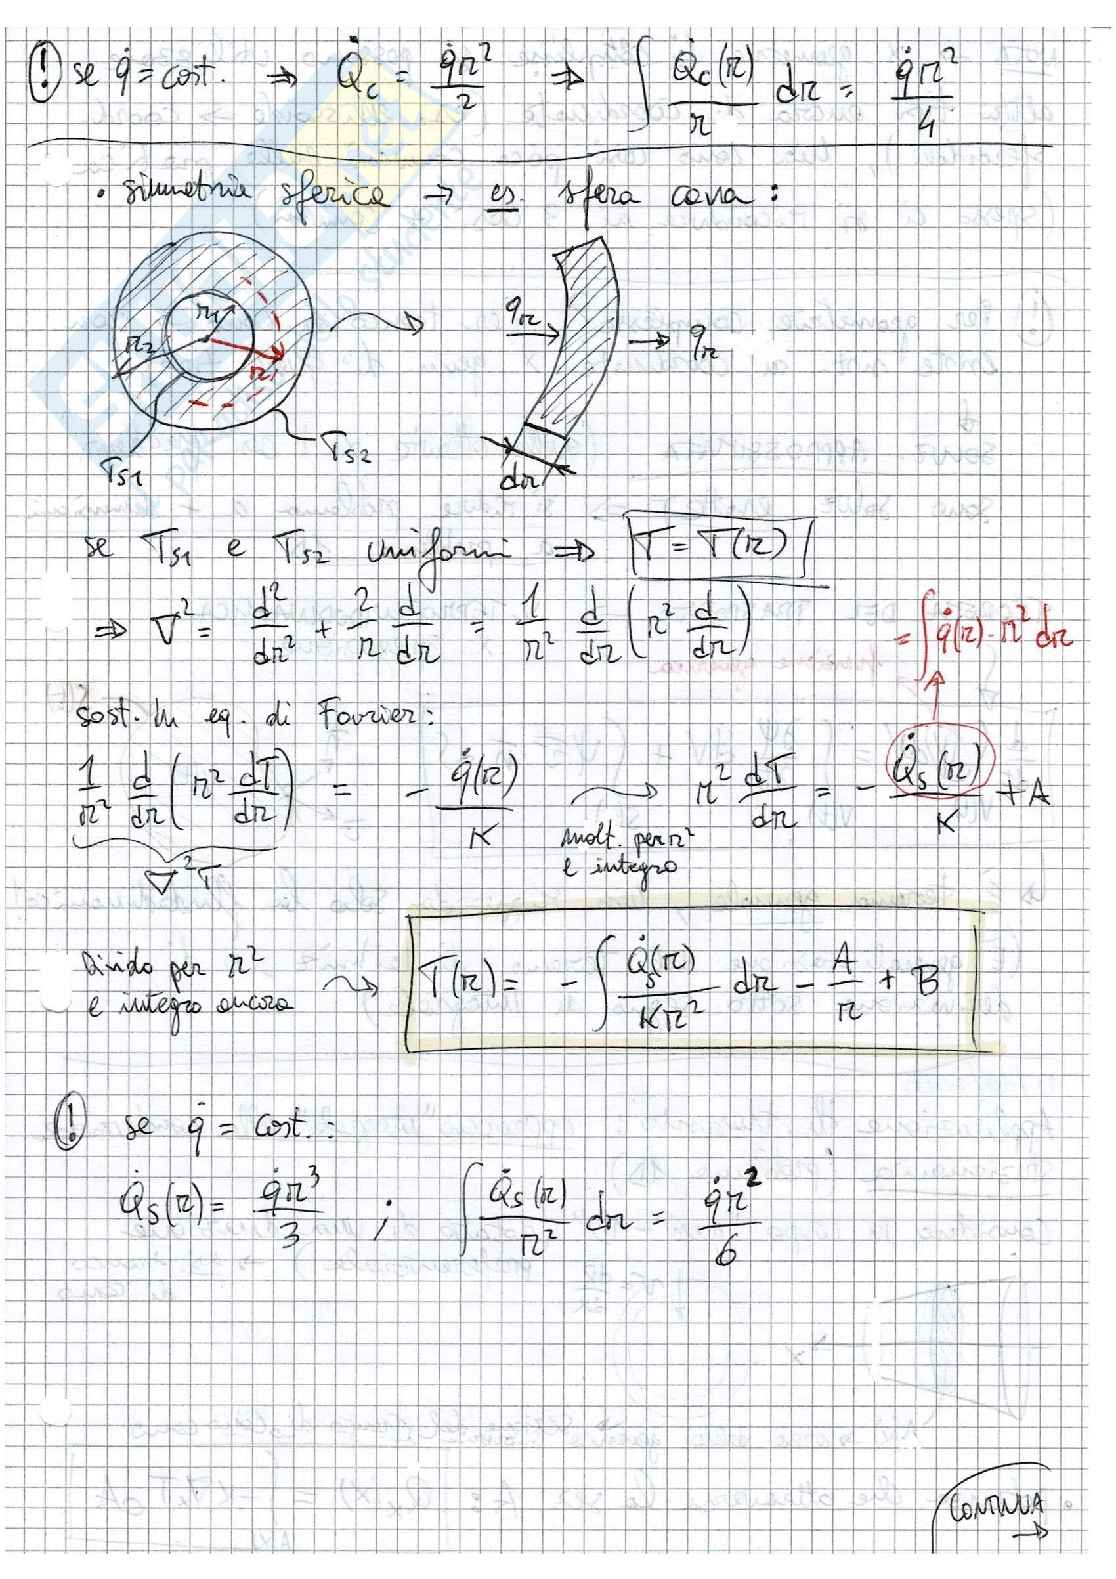 ! se q̇ = cost. ⇒ Q̇c = q̇r²/2 ⇒ ∫ Q̇c(r)/r dr = q̇r²/4
• simmetria sferica → es. sfera cava:
r1
r2
r
qr
qr
Ts1
Ts2
dr
se Ts1 e Ts2 uniformi ⇒ T = T(r)
⇒ ∇² = d²/dr² + 2/r d/dr = 1/r² d/dr (r² d/dr)
= ∫ q̇(r)·r² dr
Sost. in eq. di Fourier:
1/r² d/dr (r² dT/dr) = - q̇(r)/K
molt. per r²
e integro
r² dT/dr = - Q̇s(r)/K + A
∇²T
Divido per r²
e integro ancora
T(r) = - ∫ Q̇s(r)/Kr² dr - A/r + B
! se q̇ = cost.:
Q̇s(r) = q̇r³/3 ; ∫ Q̇s(r)/r² dr = q̇r²/6
CONTINUA
→